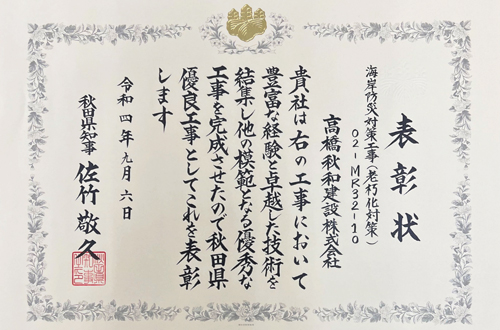 表彰状
海岸防災対策工事(老朽化対策)
02-MR32-10
高橋秋和建設株式会社
貴社は右の工事において
豊富な経験と卓越した技術を
結集し他の模範となる優秀な
工事を完成させたので秋田県
優良工事としてこれを表彰
します
令和四年九月六日
秋田県知事 佐竹敬久